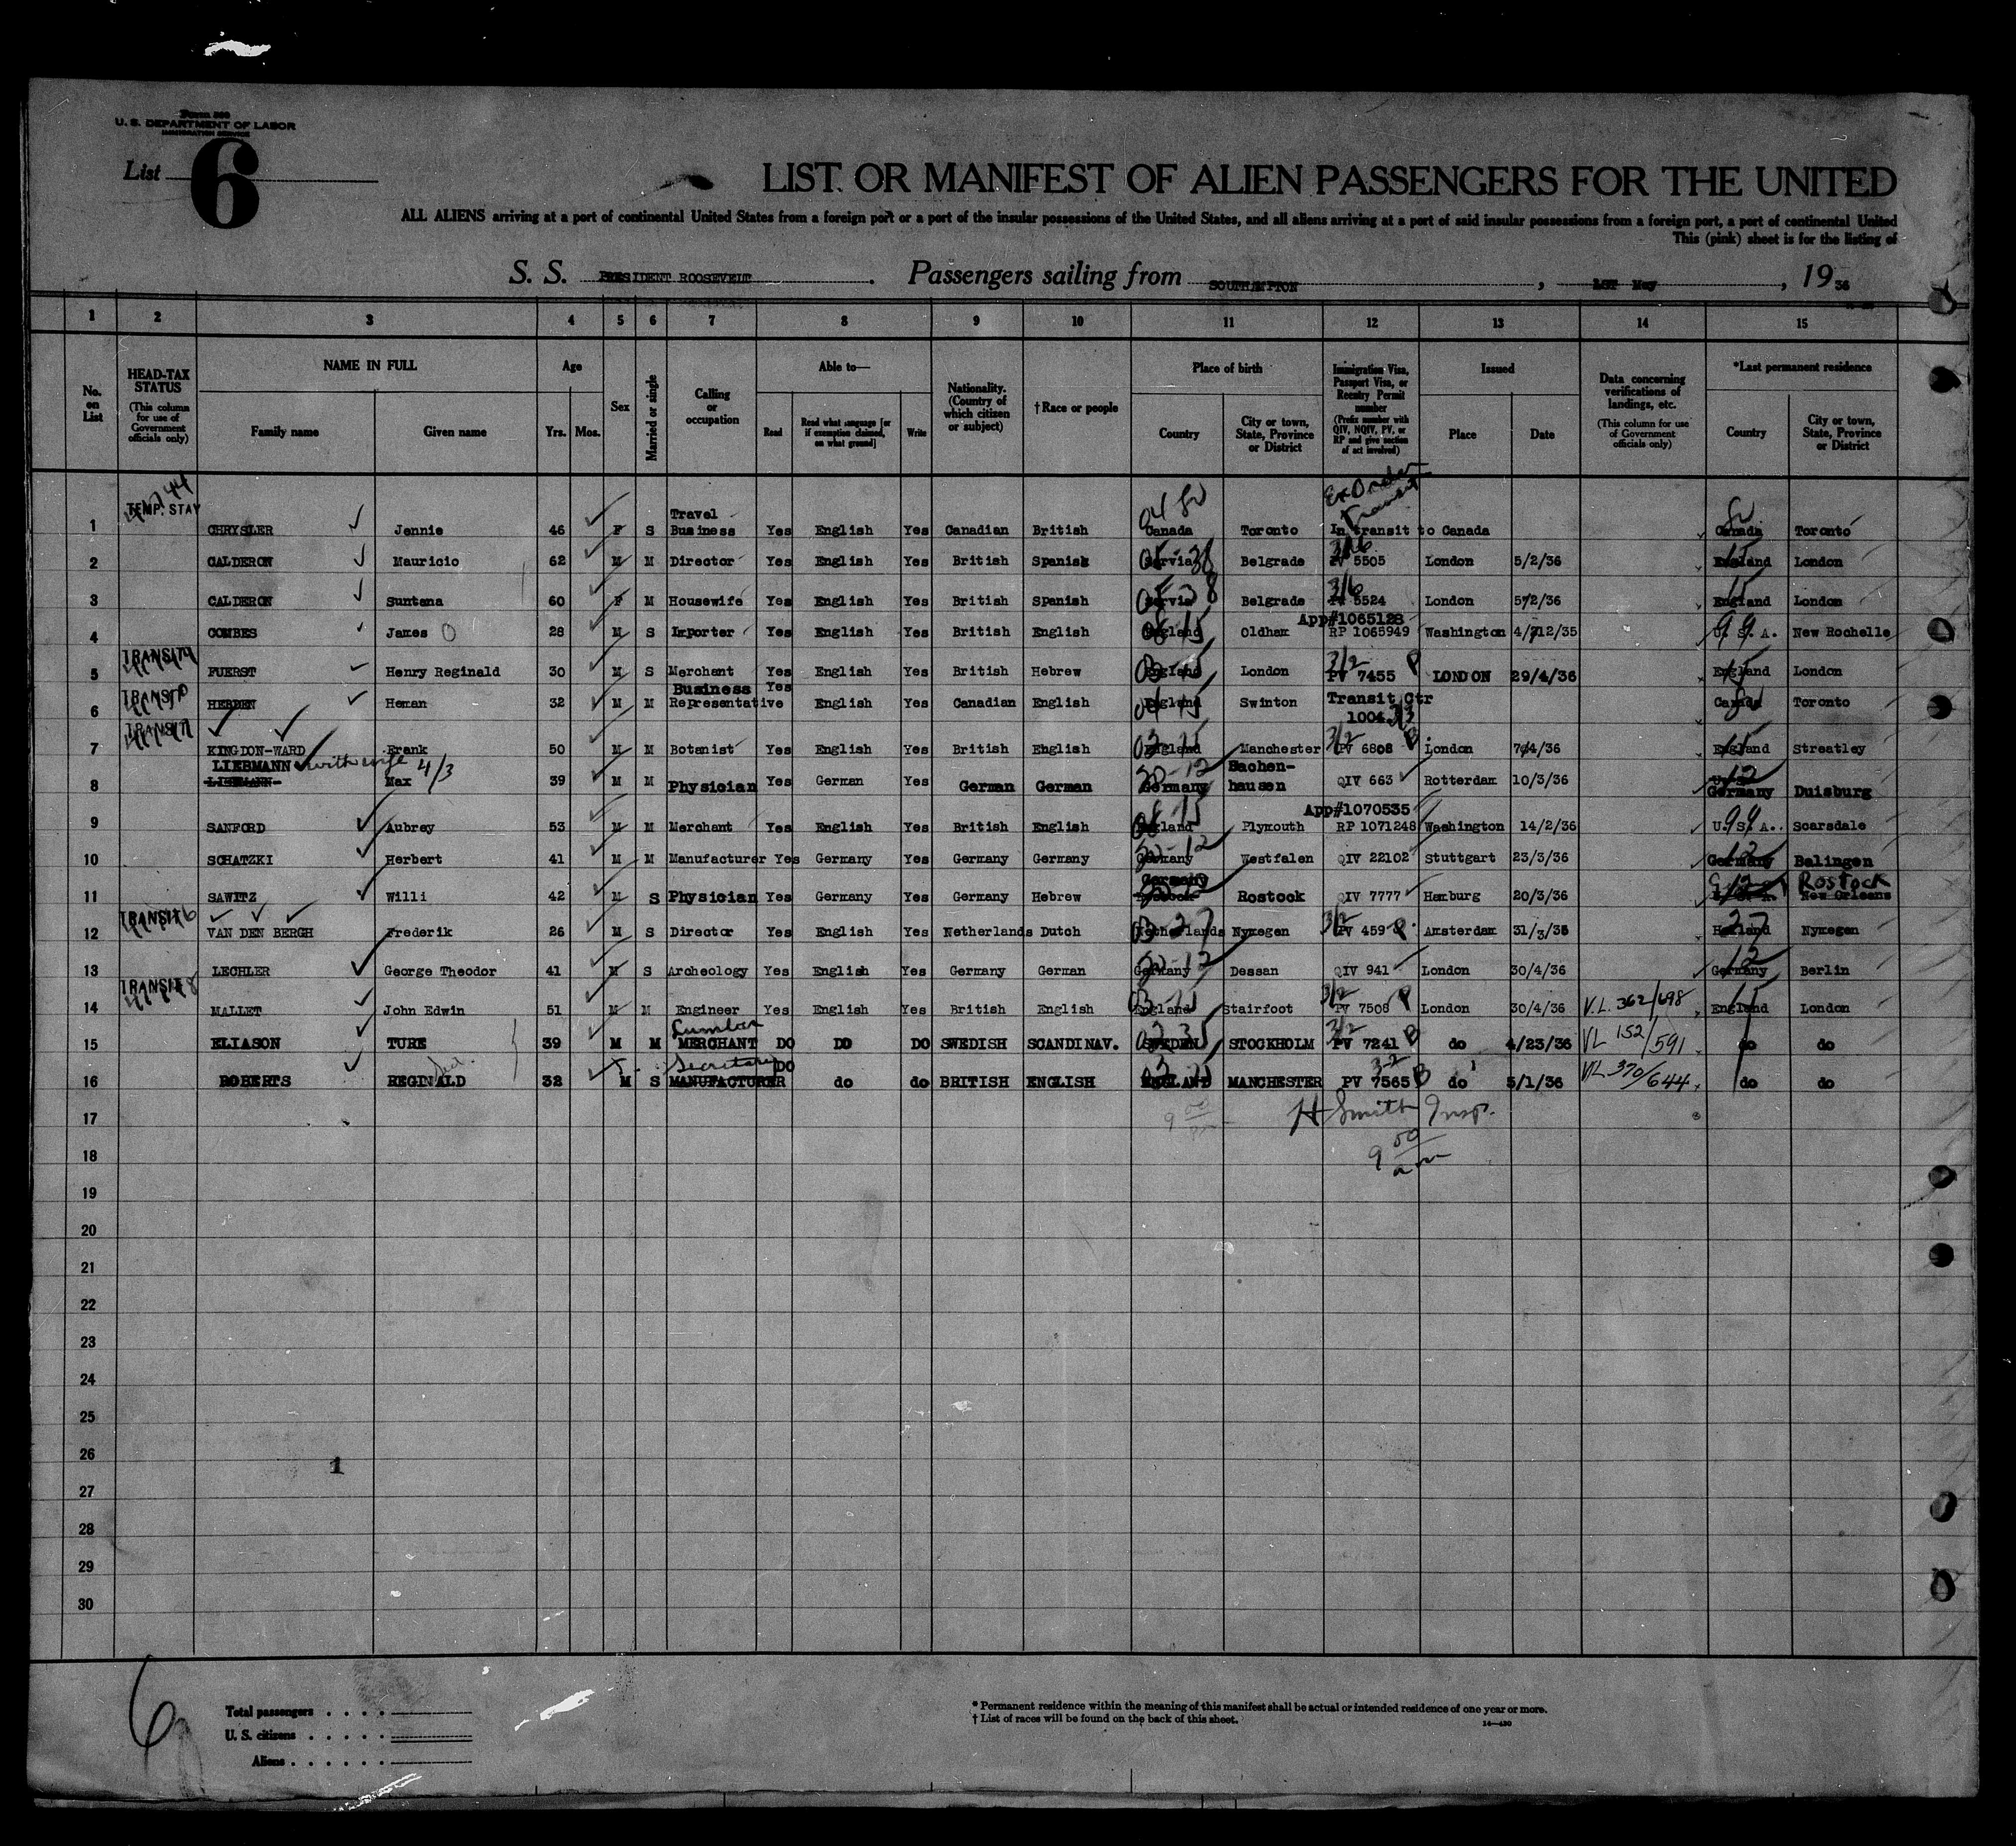 Form 500
U. S. DEPARTMENT OF LABOR
IMMIGRATION SERVICE
List 6
LIST OR MANIFEST OF ALIEN PASSENGERS FOR THE UNITED
ALL ALIENS arriving at a port of continental United States from a foreign port or a port of the insular possessions of the United States, and all aliens arriving at a port of said insular possessions from a foreign port, a port of continental United
This (pink) sheet is for the listing of
S. S. PRESIDENT ROOSEVELT. Passengers sailing from SOUTHAMPTON, 1ST May, 19 36
1 2 3 4 5 6 7 8 9 10 11 12 13 14 15
No. on List
HEAD-TAX STATUS (This column for use of Government officials only)
NAME IN FULL
Family name Given name
Age
Yrs. Mos.
Sex
Married or single
Calling or occupation
Able to—
Read Read what language [or if exemption claimed, on what ground] Write
Nationality. (Country of which citizen or subject)
† Race or people
Place of birth
Country City or town, State, Province or District
Immigration Visa, Passport Visa, or Reentry Permit number (Prefix number with QIV, NQIV, PV, or RP and give section of act involved)
Issued
Place Date
Data concerning verifications of landings, etc. (This column for use of Government officials only)
*Last permanent residence
Country City or town, State, Province or District
TEMP. STAY Travel Ex Order Transit
1 CHRYSLER Jennie 46 F S Business Yes English Yes Canadian British Canada Toronto In transit to Canada Canada Toronto
2 CALDERON Mauricio 62 M M Director Yes English Yes British Spanish Servia Belgrade PV 5505 London 5/2/36 England London
3 CALDERON Suntana 60 F M Housewife Yes English Yes British Spanish Servia Belgrade PV 5524 London 5/2/36 England London
App#1065128
4 COMBES James 28 M S Importer Yes English Yes British English England Oldham RP 1065949 Washington U. S. A. New Rochelle
TRANSIT 3/2 P
5 FUERST Henry Reginald 30 M S Merchant Yes English Yes British Hebrew England London PV 7455 LONDON 29/4/36 England London
TRANSIT Business Yes Transit Ctr
6 HEBDEN Heman 32 M M Representative English Yes Canadian English England Swinton 1004 Canada Toronto
TRANSIT 3/2
7 KINGDON-WARD Frank 50 M M Botanist Yes English Yes British English England Manchester PV 6808 London 7/4/36 England Streatley
LIEBMANN with wife 4/3 Sachen-
8 Max 39 M M Physician Yes German Yes German German Germany hausen QIV 663 Rotterdam 10/3/36 Germany Duisburg
App#1070535
9 SANFORD Aubrey 53 M M Merchant Yes English Yes British English England Plymouth RP 1071248 Washington 14/2/36 U. S. A. Scarsdale
10 SCHATZKI Herbert 41 M M Manufacturer Yes Germany Yes Germany Germany Germany Westfalen QIV 22102 Stuttgart 23/3/36 Germany Balingen
Germany Rostock
11 SAWITZ Willi 42 M S Physician Yes Germany Yes Germany Hebrew Rostock QIV 7777 Hamburg 20/3/36 New Orleans
TRANSIT
12 VAN DEN BERGH Frederik 26 M S Director Yes English Yes Netherlands Dutch Netherlands Nymegen PV 459 Amsterdam 31/3/36 Holland Nymegen
13 LECHLER George Theodor 41 M S Archeology Yes English Yes Germany German Germany Dessan QIV 941 London 30/4/36 Germany Berlin
TRANSIT 3/2 P
14 MALLET John Edwin 51 M M Engineer Yes English Yes British English England Stairfoot PV 7508 London 30/4/36 V.L. 362/698 England London
Lumber 3/2
15 ELIASON TURE 39 M M MERCHANT DO DO DO SWEDISH SCANDINAV. SWEDEN STOCKHOLM PV 7241 B do 4/23/36 VL 152/591 do do
Secretary DO 3-2
16 ROBERTS REGINALD 32 M S MANUFACTURER do do BRITISH ENGLISH ENGLAND MANCHESTER PV 7565 B do 5/1/36 VL 370/644 do do
17 H Smith Insp.
18 9 00 am
19
20
21
22
23
24
25
26 1
27
28
29
30
6
Total passengers
U. S. citizens
Aliens
* Permanent residence within the meaning of this manifest shall be actual or intended residence of one year or more.
† List of races will be found on the back of this sheet.
14—430